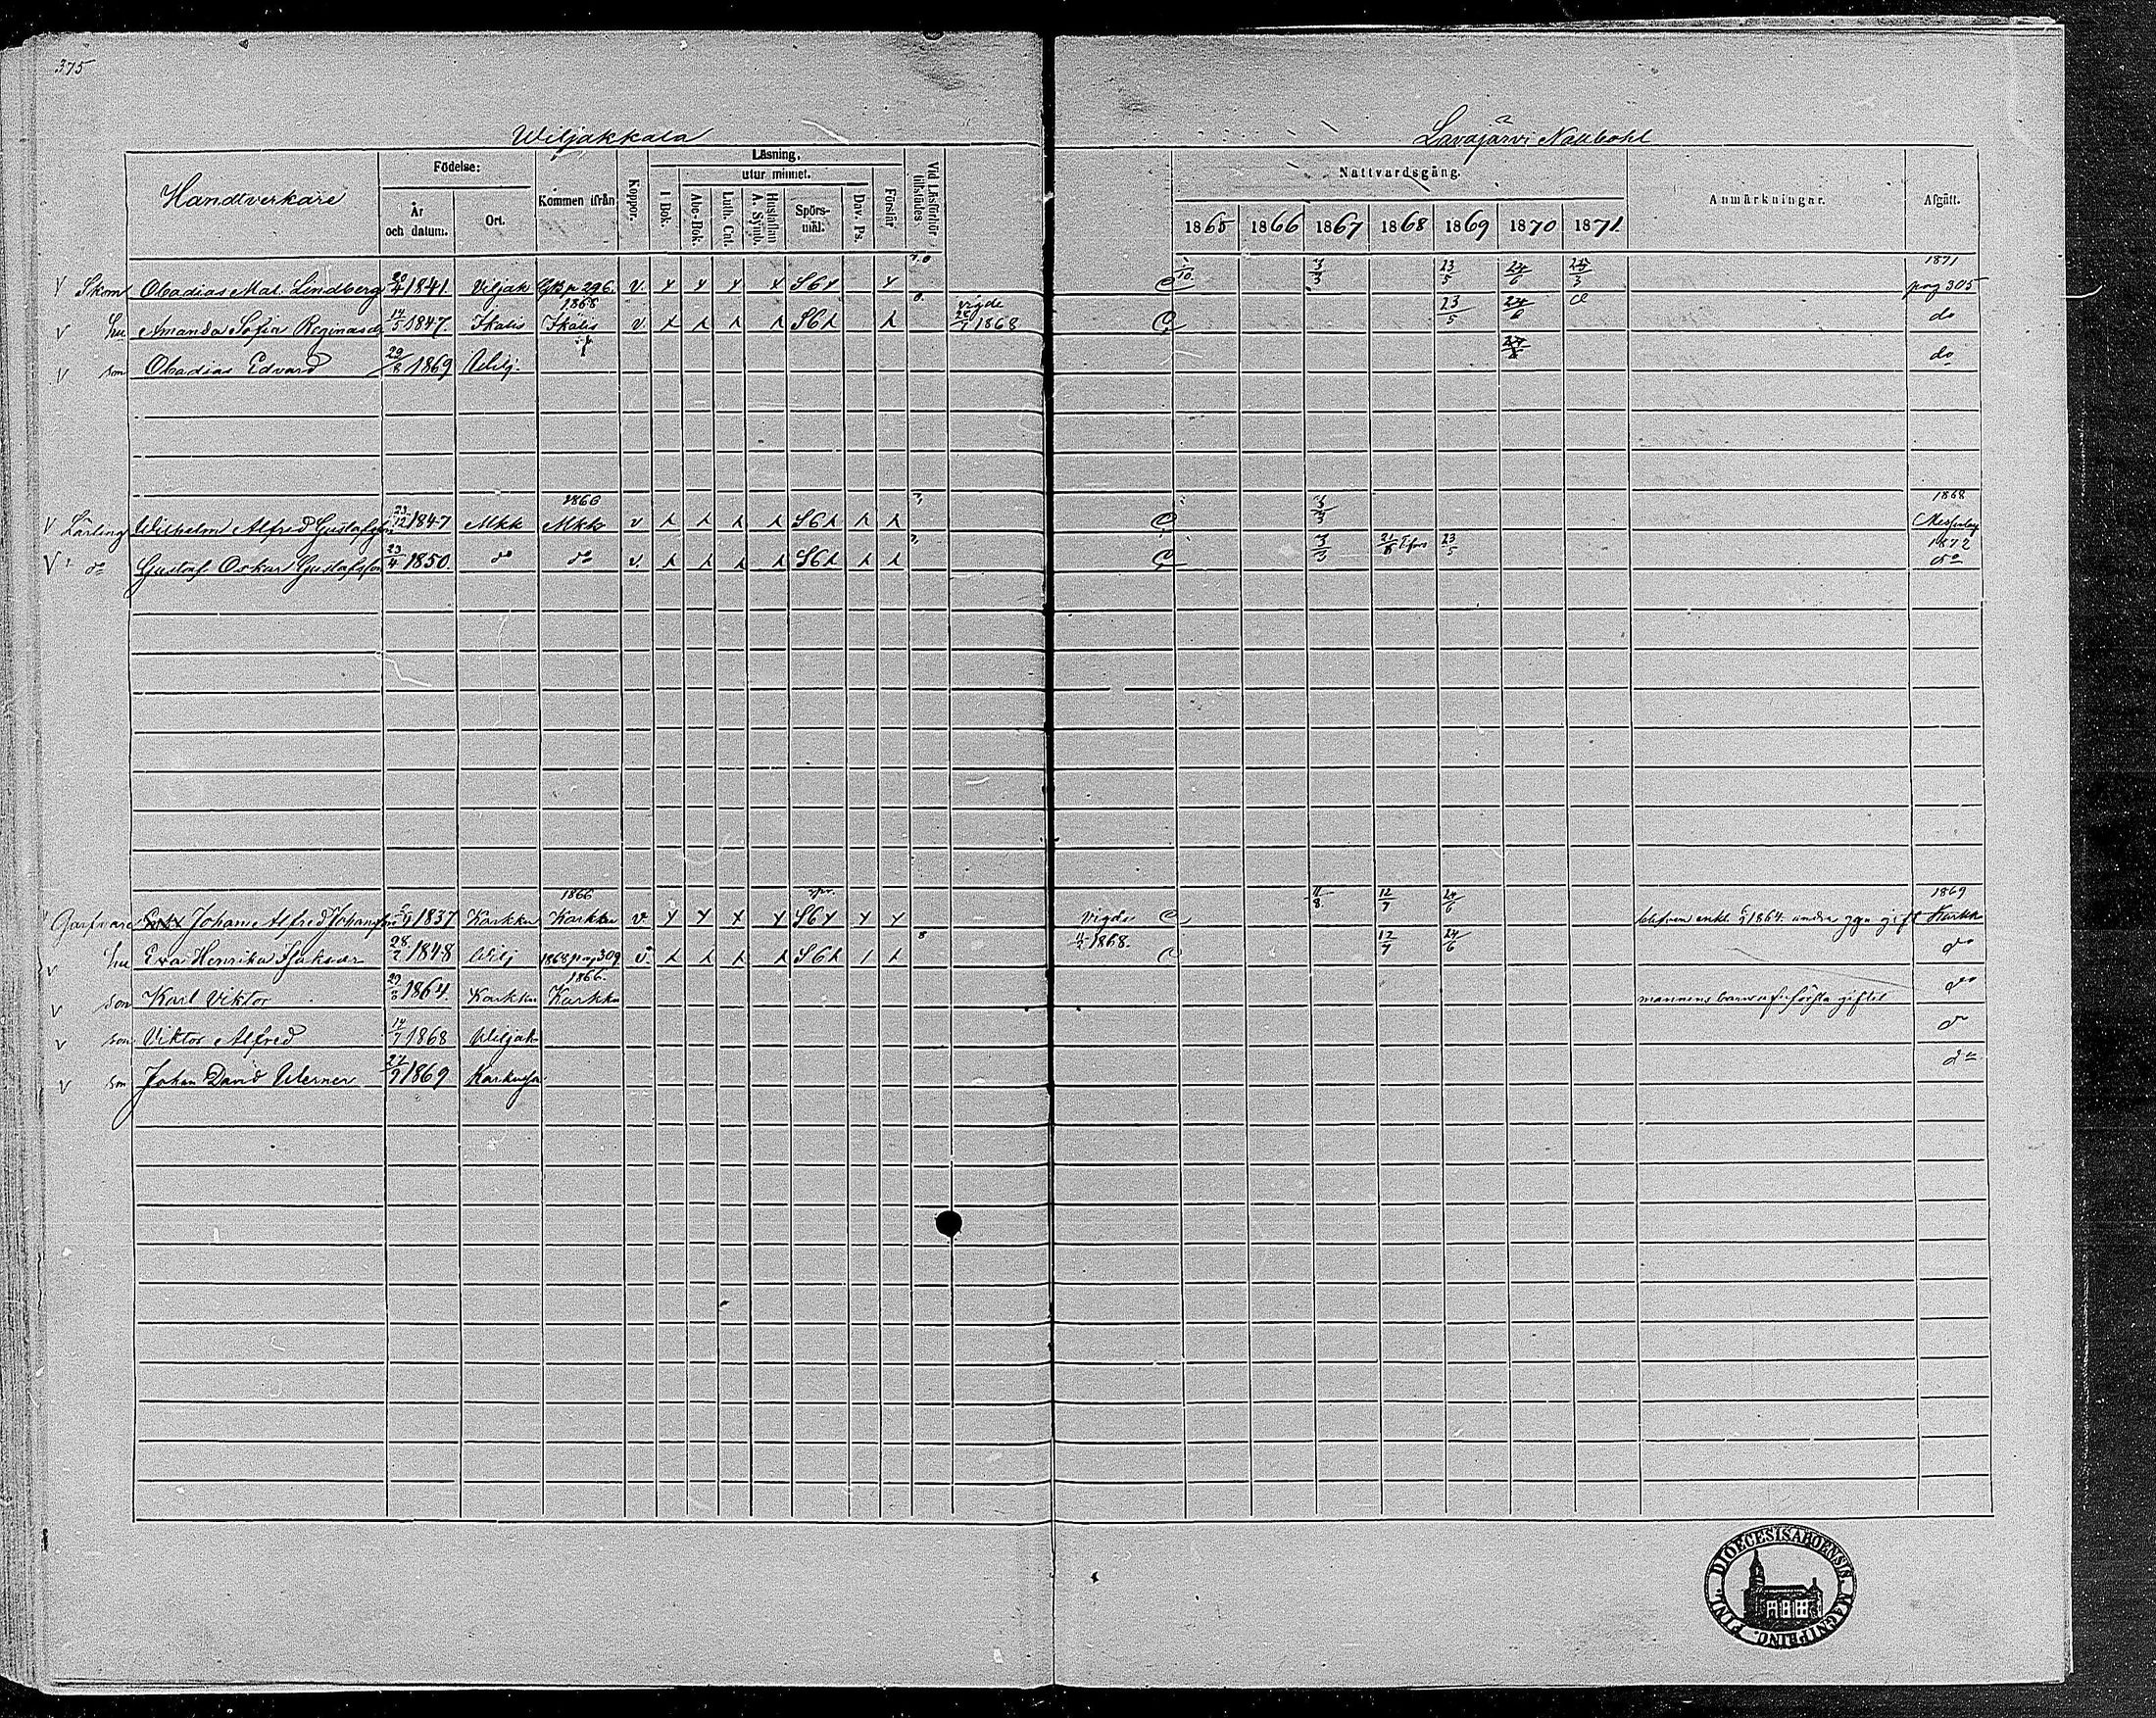 375
Wiljakkala Lavajärvi Nabbohl
Handtverkare Födelse: År och datum. Ort. Kommen ifrån Koppor. Läsning. I Bok. utur minnet. Abc-Bok. Luth. Cat. Hustaflan A. Symb. Spörs-mål. Dav. Ps. Förstår Vid Läsförhör tillstädes Nattvardsgång. 1865 1866 1867 1868 1869 1870 1871 Anmärkningar. Afgått.
1871
V Skom Obadias Mat. Lindberg 20/4 1841. Viljak 296. v. S6 3/3 23/5 24/6 25/3 pag 305
1868 vigde
V hu Amanda Sofia Reginasdr 14/5 1847. Ikalis Ikalis v S6 1868 23/5 24/6 do
V son Obadias Edvard 29/8 1869 Wilj. do
1866 1868
V Lärling Wilhelm Alfred Gustafsson 23/12 1847 Mkk Mkk v S6 3/3
V do Gustaf Oskar Gustafsson 23/4 1850. do do v. S6 3/3 23/5 1872 do
1866 1869
Garfvare Johan Alfred Johansson 1837 Karkku Karkku v. S6 Vigde 11/8 12/7 24/6 blefven enkl. 1864. andra ggn gift Karkk
v hu Eva Henrika 28/2 1848 Wilj 1868 pag 309 v. S6 1868. 12/7 24/6 do
1866.
v son Karl Viktor 1864. Karkku Karkku mannens barn af första giftet do
v son Viktor Alfred 14/7 1868 Wiljak do
v son Johan David Werner 27/9 1869 do
FINL. DIOECESIS ABOENSIS. MAGNI PRINC.